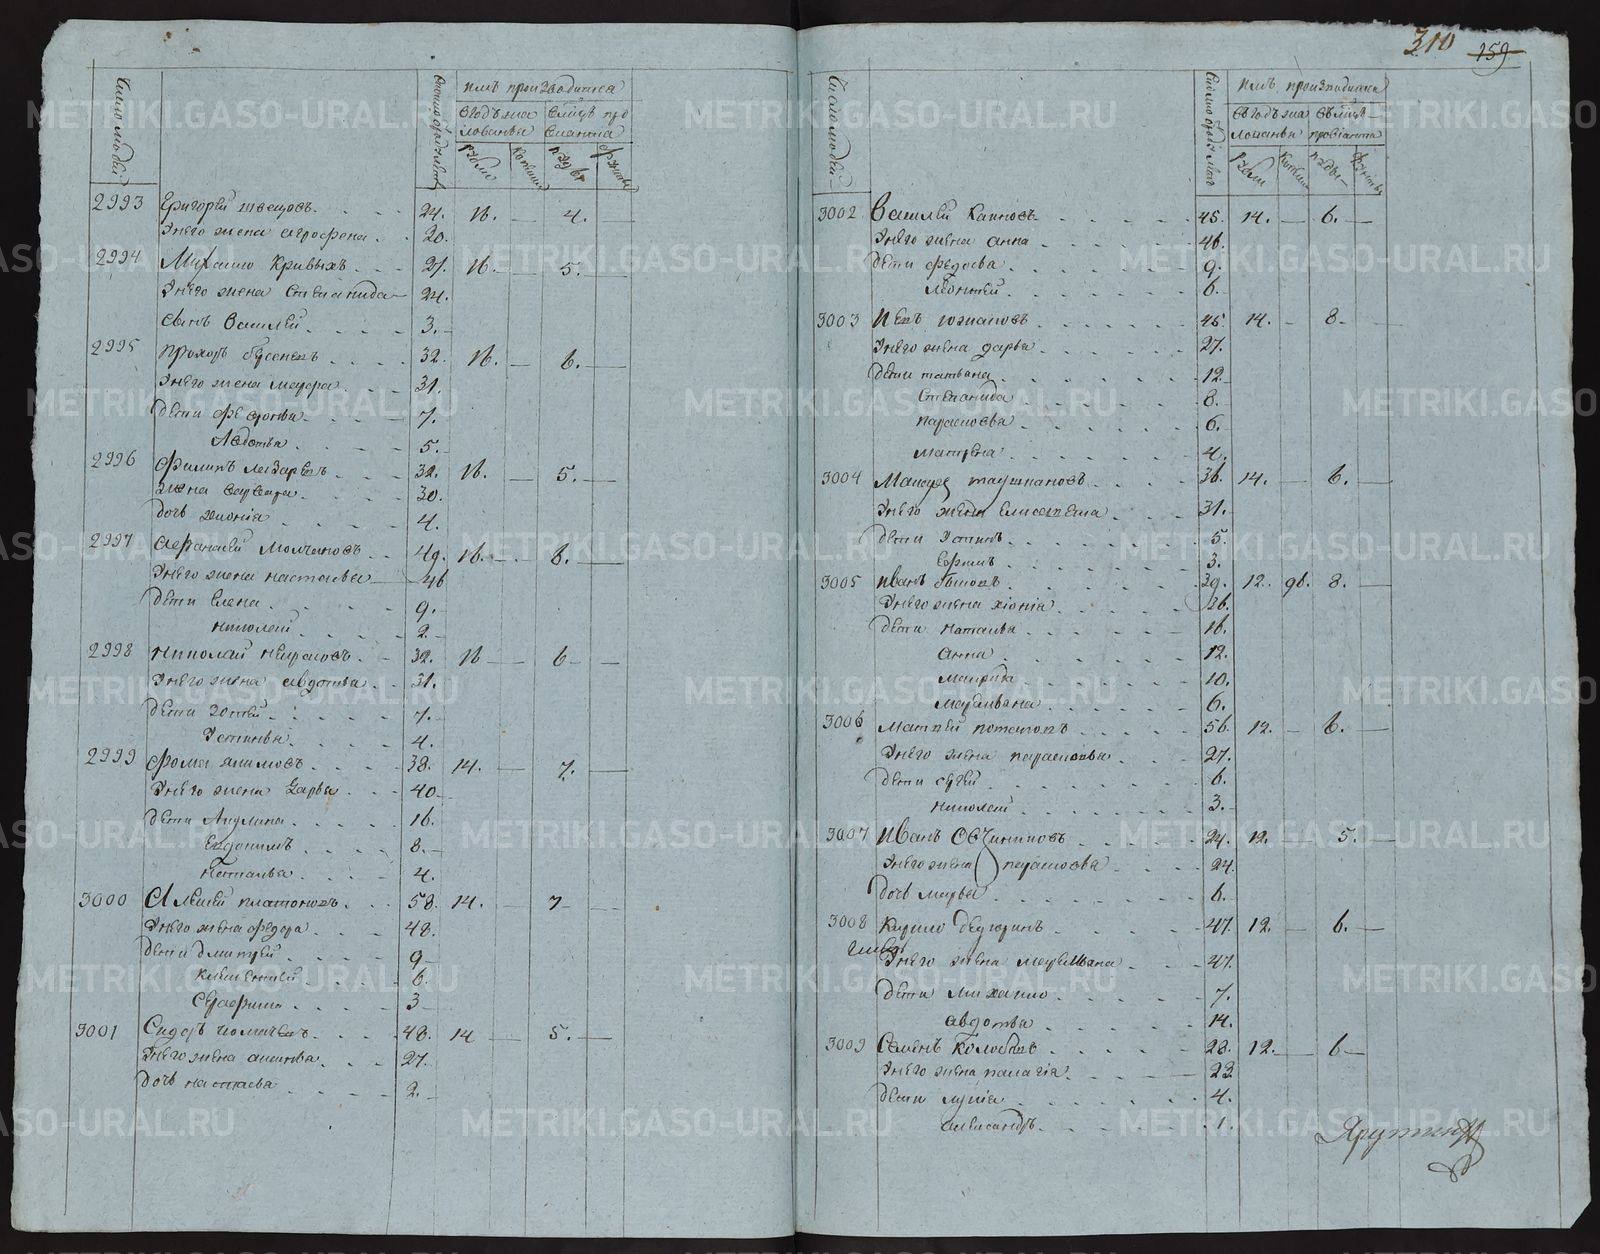 310 159
Число людей
Сколько от роду лет
имъ производится
в годъ жалованья
в месяцъ провианта
рубли
копейки
пуды
фунты
2993 Григорей Швецовъ 24. 16. — 4. —
У него жена Агрофена 20.
2994 Михайло Кривыхъ 27. 16. — 5. —
У него жена Степанида 24.
сынъ Василей 3.
2995 Прохоръ 32. 16. — 6. —
У него жена Мавра 31.
дети Федотья 7.
Авдотья 5.
2996 Филипъ Лазаревъ 32. 16. — 5. —
жена Варвара 30.
дочь Хионiя 4.
2997 Афанасей Молчановъ 49. 16. — 6. —
У него жена Настасья 46
дети Елена 9.
Николай 2.
2998 Николай Некрасовъ 32. 16 — 6 —
У него жена Авдотья 31.
дети Зотей 7.
Устинья 4.
2999 Фома Якимовъ 38. 14. — 7. —
У него жена Дарья 40
дети Акулина 16.
Евдокимъ 8.
Наталья 4.
3000 Алексей Платоновъ 58. 14. — 7 —
У него жена Федора 48.
дети Дмитрей 9
Климентей 6.
Серафима 3
3001 Сидоръ 48. 14 — 5. —
У него жена Аксинья 27.
дочь Настасья 2.
Число людей
Сколько от роду лет
имъ производится
в годъ жалованья
в месяцъ провианта
рубли
копейки
пуды
фунты
3002 Василей Каиновъ 45. 14. — 6. —
У него жена Анна 46.
дети Федосья 9.
Леонтей 6.
3003 45 14. — 8. —
У него жена Дарья 27.
дети Татьяна 12.
Степанида 8.
Парасковья 6.
Матрена 4.
3004 Макаръ Таушкановъ 36. 14. — 6. —
У него жена Елисавета 31.
дети Устинъ 5.
Ефимъ 3.
3005 Иванъ 39. 12. 96. 8. —
У него жена Хiонiя 36.
дети Наталья 16.
Анна 12.
Маирида 10.
Маремьяна 6.
3006 Матвей Потаповъ 56. 12. — 6. —
У него жена Парасковья 27.
дети Сергей 6.
Николай 3.
3007 Иванъ Овчинниковъ 24. 12. — 5. —
У него жена Парасковья 24.
дочь Марья 6.
3008 Кирило Дедюринъ 47. 12. — 6. —
У него жена Маремьяна 47.
дети Михайло 7.
Авдотья 14.
3009 Семенъ Колобовъ 28. 12. — 6 —
У него жена Палагiя 23.
дети Лукiя 4.
Александръ 1.